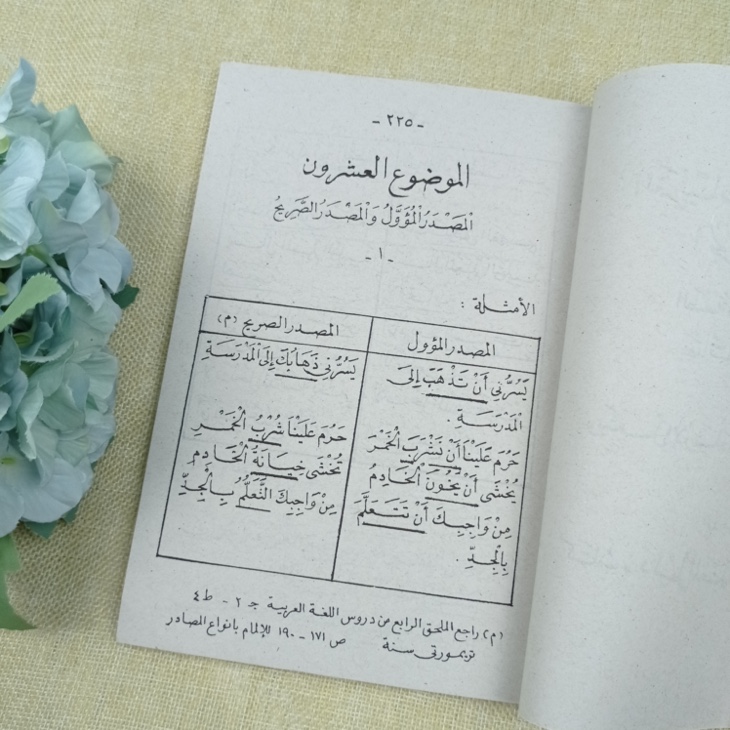 - ٢٢٥ -
الموضوع العشرون
اَلْمَصْدَرُ الْمُؤَوَّلُ وَالْمَصْدَرُ الصَّرِيحُ
- ١ -
الأمثلة :
المصدر المؤول
المصدر الصريح (م)
يَسُرُّنِي أَنْ تَذْهَبَ إِلَى
الْمَدْرَسَةِ .
يَسُرُّنِي ذَهَابُكَ إِلَى الْمَدْرَسَةِ
حَرُمَ عَلَيْنَا أَنْ نَشْرَبَ الْخَمْرَ
حَرُمَ عَلَيْنَا شُرْبُ الْخَمْرِ
يُخْشَى أَنْ يَخُونَ الْخَادِمُ
تُخْشَى خِيَانَةُ الْخَادِمِ
مِنْ وَاجِبِكَ أَنْ تَتَعَلَّمَ
بِالْجِدِّ .
مِنْ وَاجِبِكَ التَّعَلُّمُ بِالْجِدِّ
(م) راجع الملحق الرابع من دروس اللغة العربية جـ ٢ - ط ٤
تريمورتى سنة ص ١٧١ - ١٩٠ للإلمام بانواع المصادر